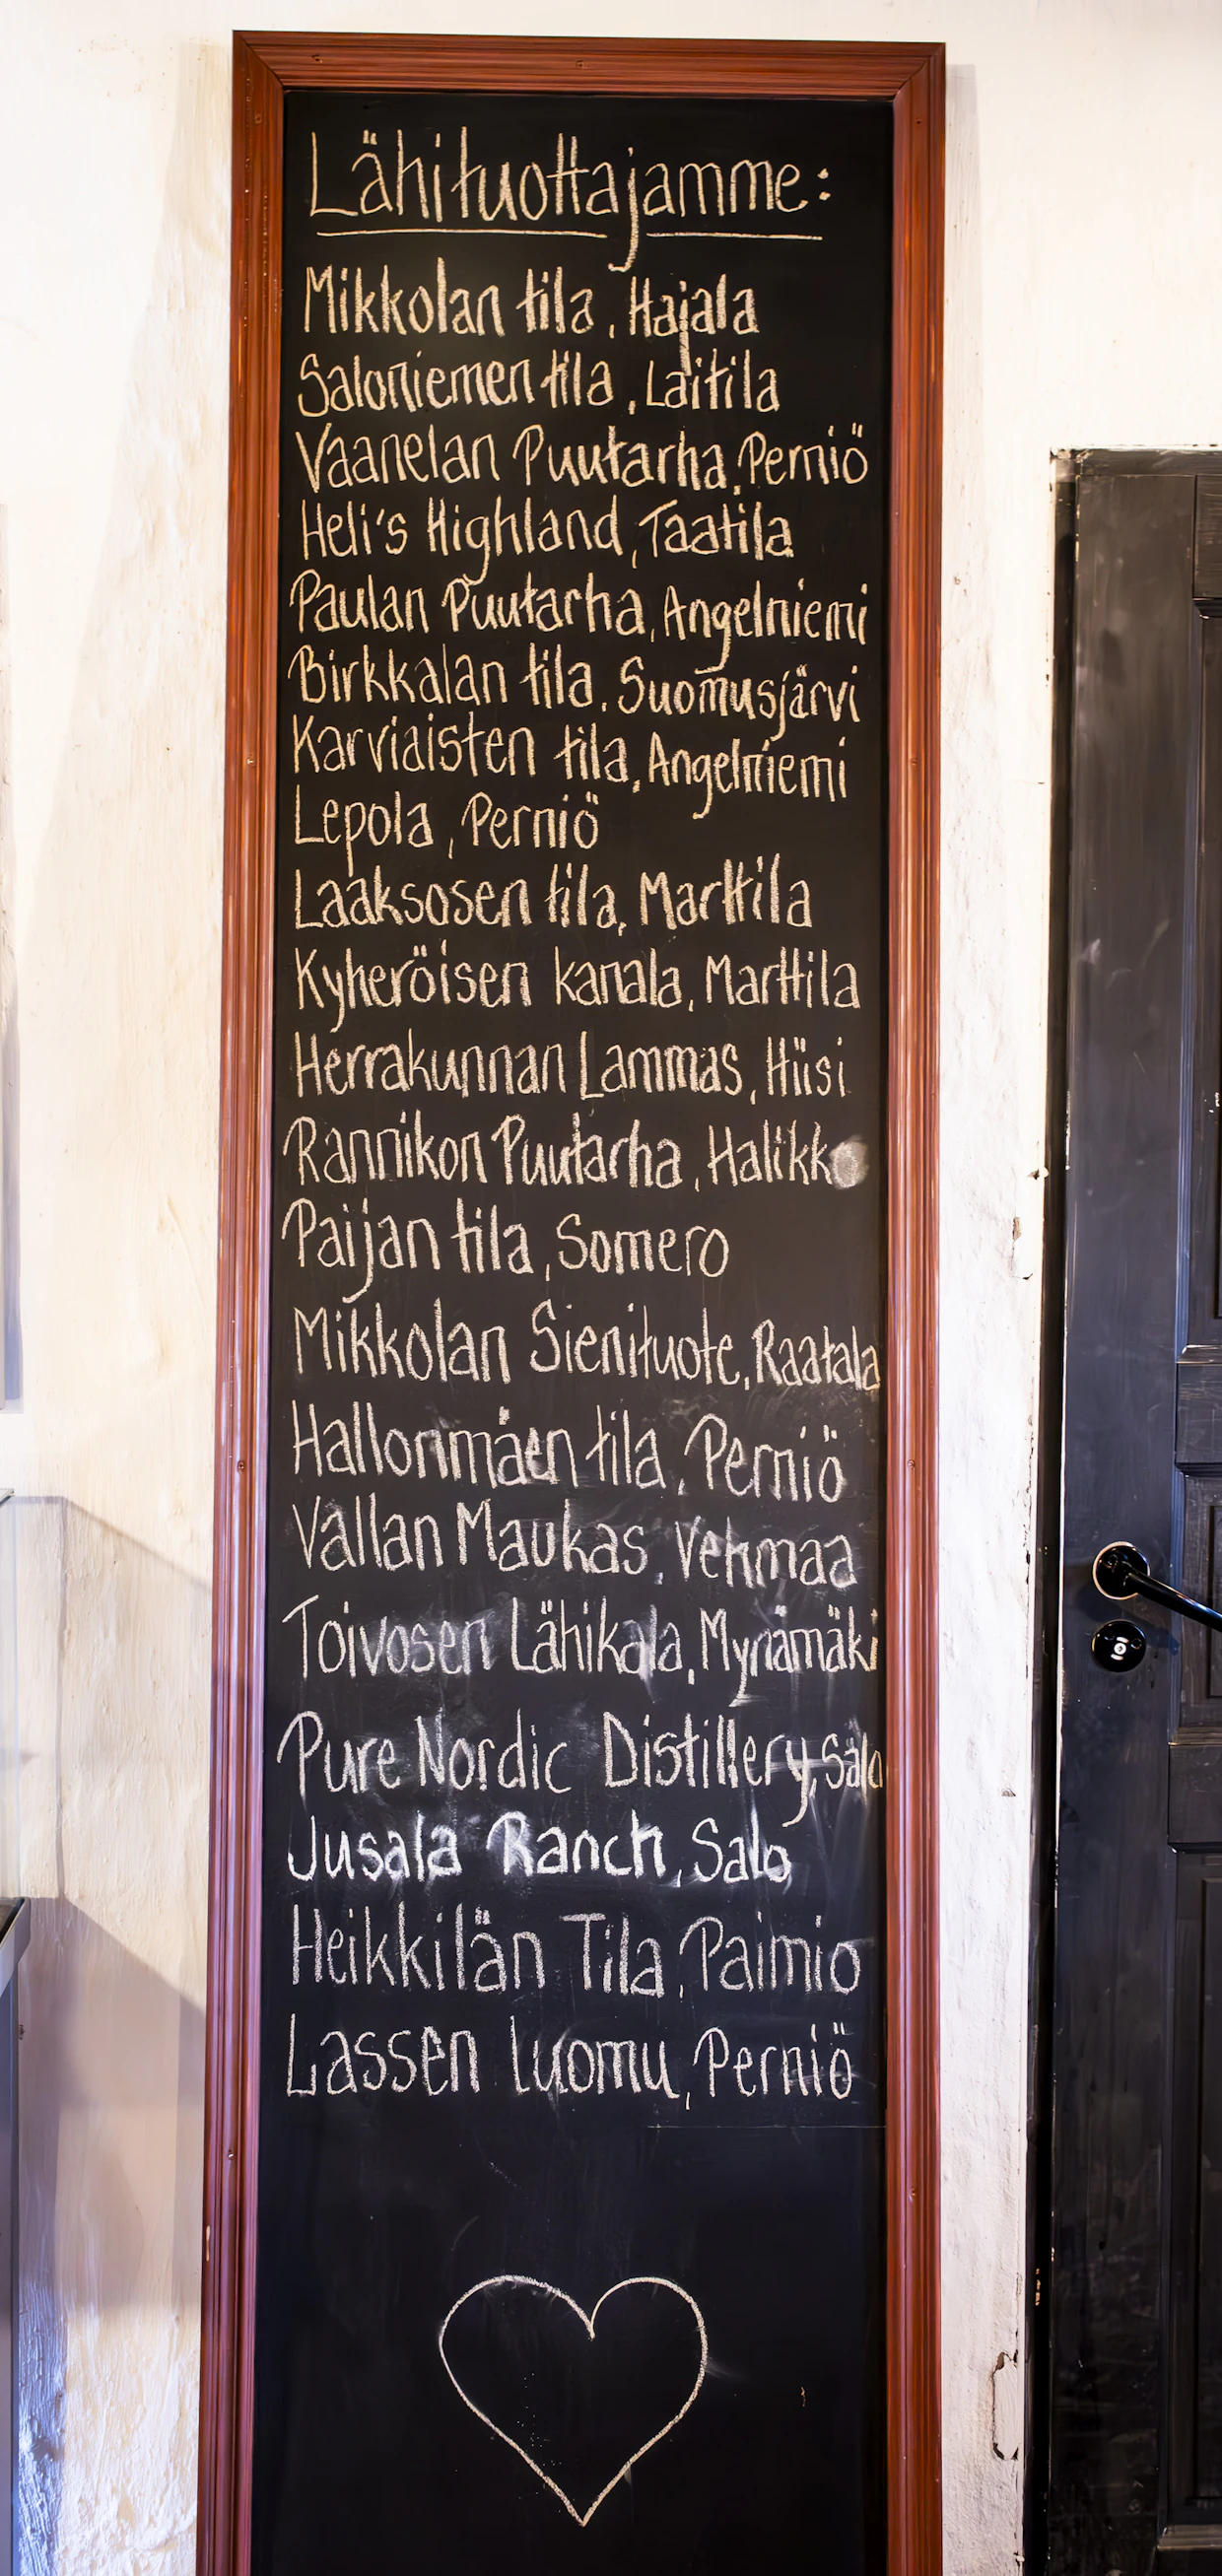 Lähituottajamme:
Mikkolan tila, Hajala
Saloniemen tila, Laitila
Vaanelan Puutarha, Perniö
Heli's Highland, Taatila
Paulan Puutarha, Angelniemi
Birkkalan tila, Suomusjärvi
Karviaisten tila, Angelniemi
Lepola, Perniö
Laaksosen tila, Marttila
Kyheröisen kanala, Marttila
Herrakunnan Lammas, Hiisi
Rannikon Puutarha, Halikko
Paijan tila, Somero
Mikkolan Sienituote, Raatala
Hallonmäen tila, Perniö
Vallan Maukas, Vehmaa
Toivosen Lähikala, Mynämäki
Pure Nordic Distillery, Salo
Jusala Ranch, Salo
Heikkilän Tila, Paimio
Lassen luomu, Perniö